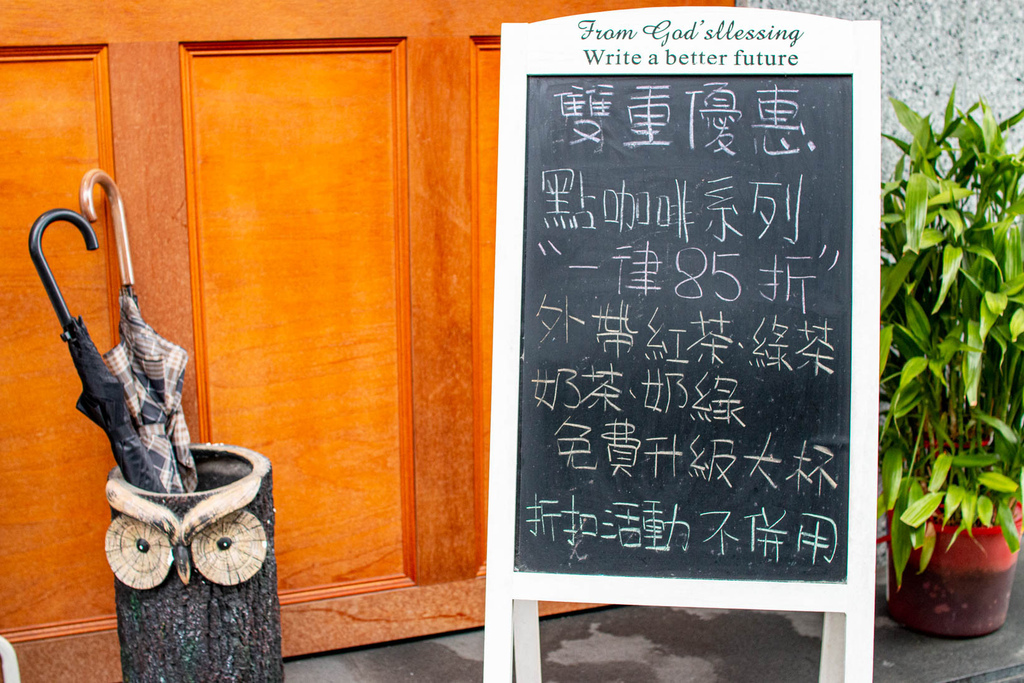 From God'sllessing
Write a better future
雙重優惠.
點咖啡系列
"一律85折"
外帶紅茶、綠茶
奶茶、奶綠
免費升級大杯
折扣活動不併用